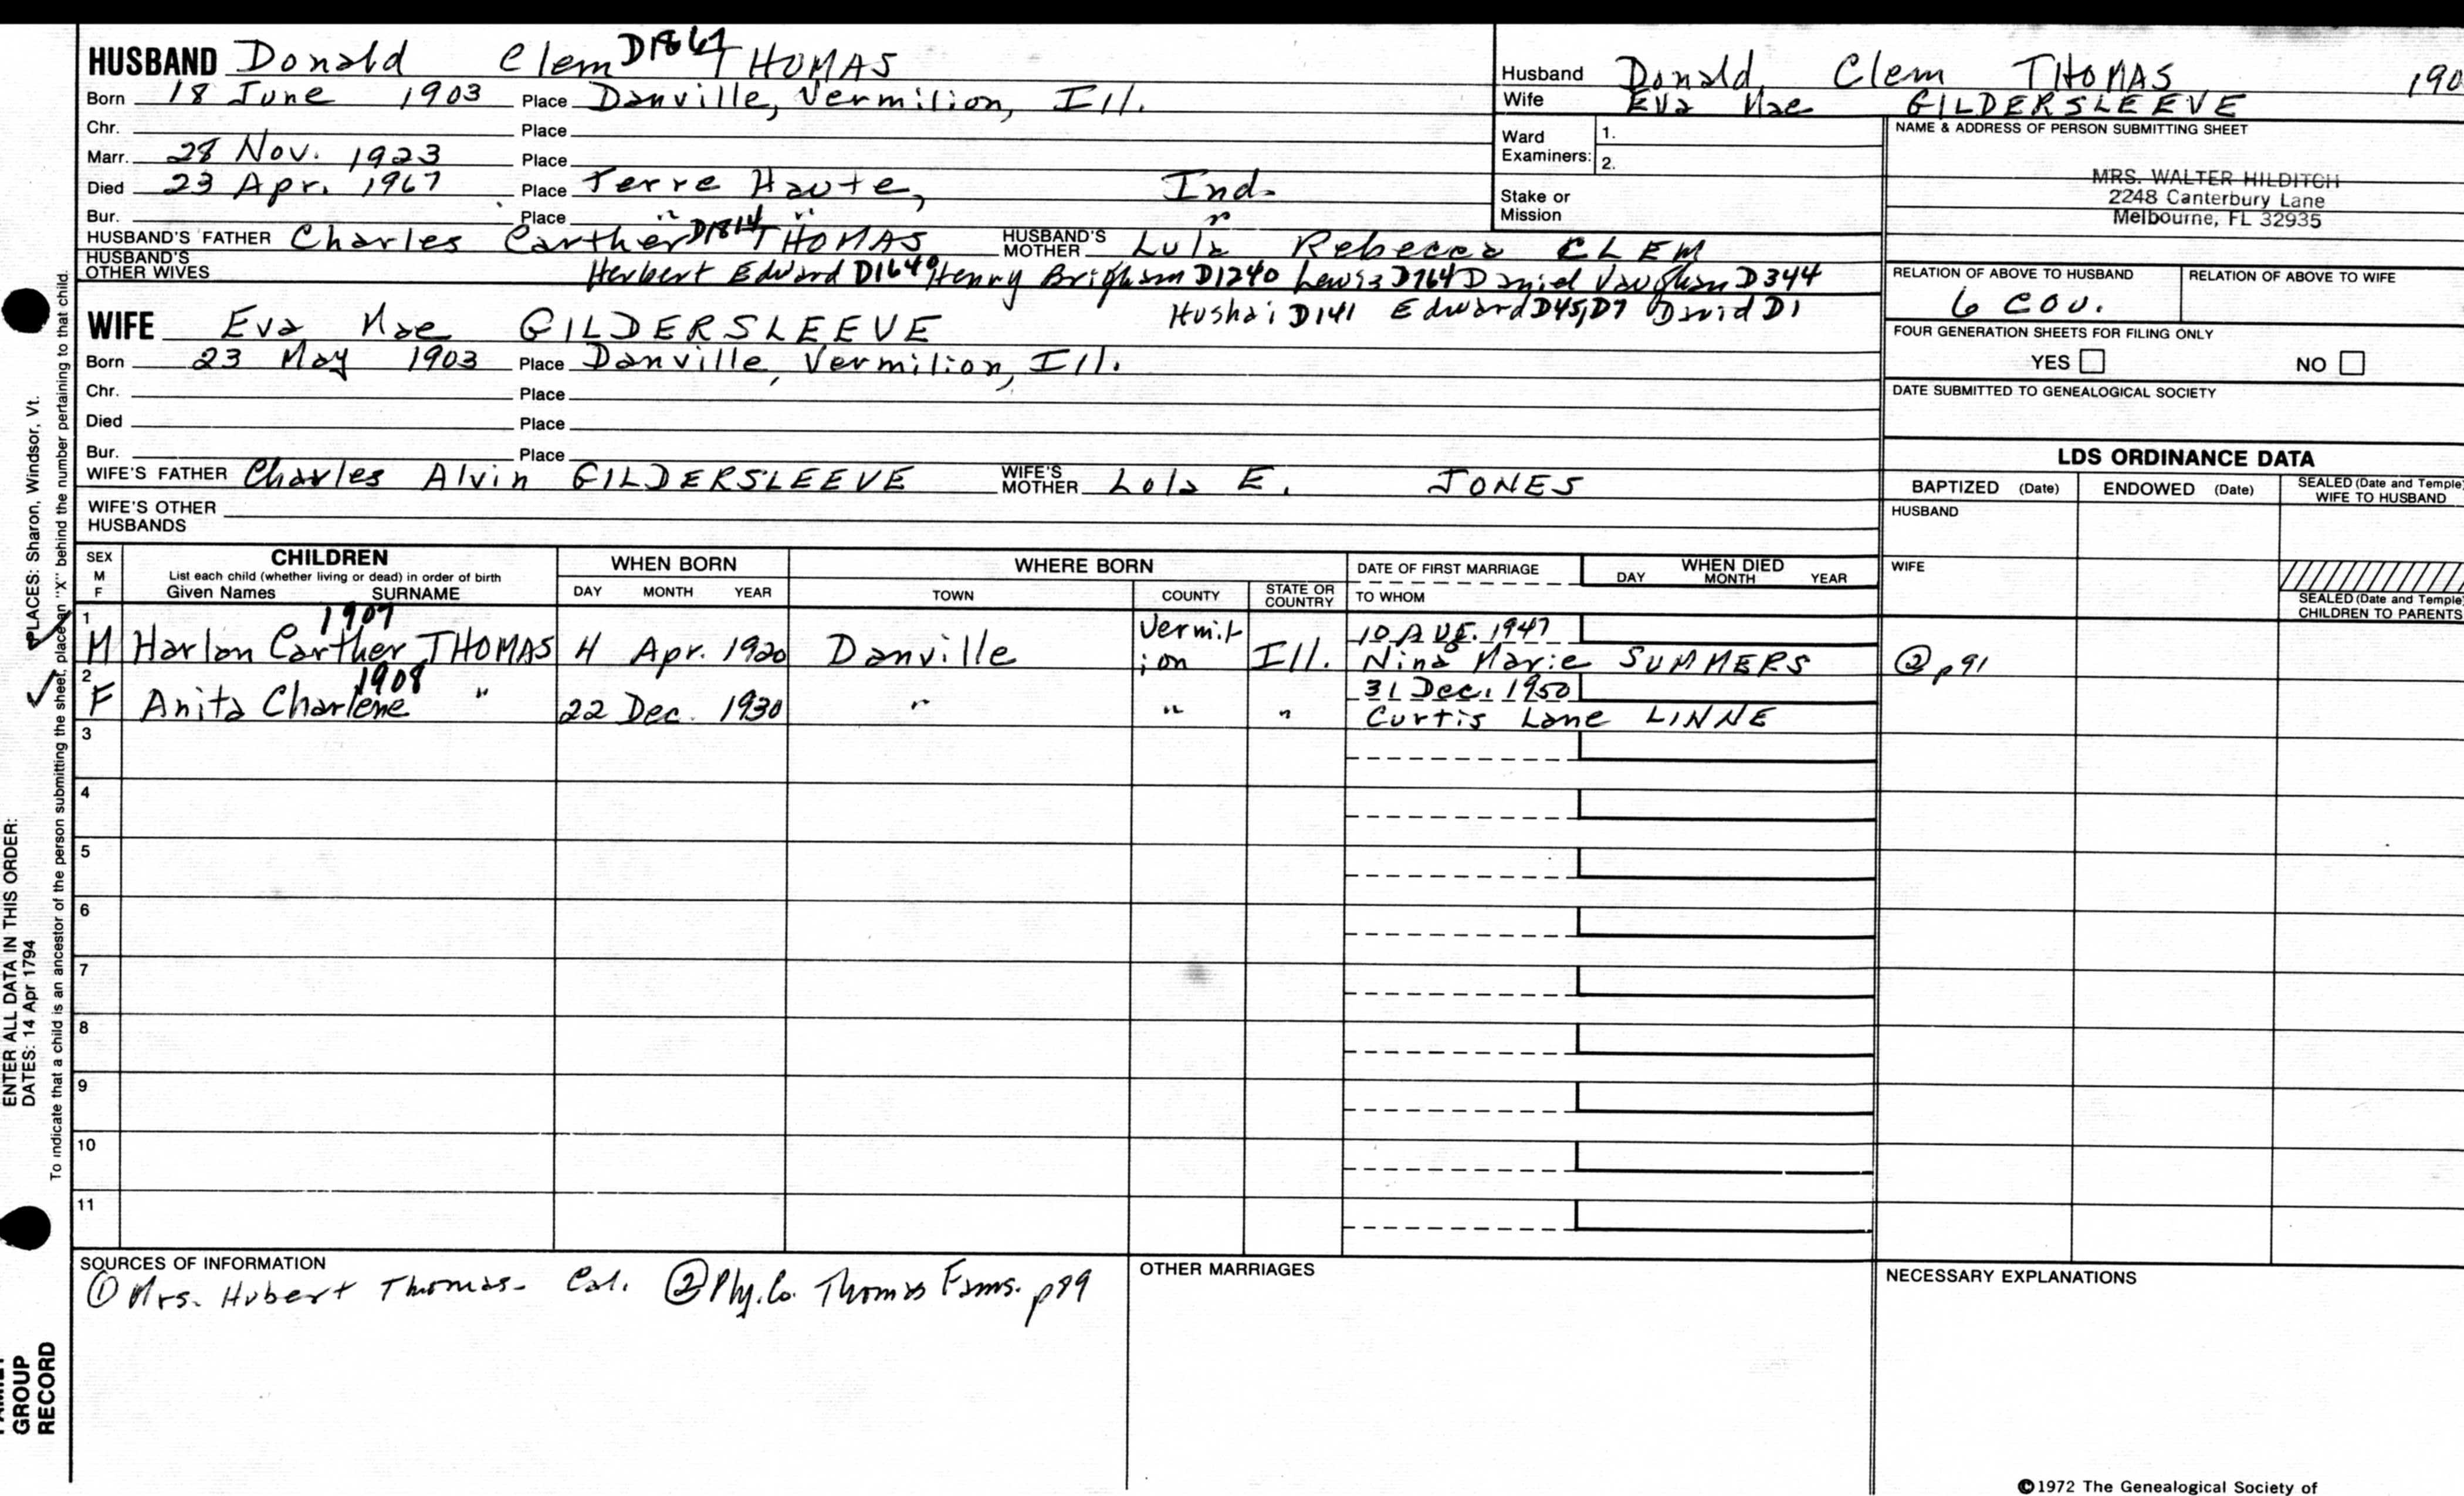 HUSBAND Donald Clem D1867 THOMAS
Born 18 June 1903 Place Danville, Vermilion, Ill.
Chr. Place
Marr. 28 Nov. 1923 Place
Died 23 Apr. 1967 Place Terre Haute, Ind.
Bur. Place " " "
HUSBAND'S FATHER Charles Carther D1814 THOMAS HUSBAND'S MOTHER Lula Rebecca CLEM
HUSBAND'S OTHER WIVES
Herbert Edward D1640 Henry Brigham D1240 Lewis D764 Daniel Vaughan D344
Hushai D141 Edward D45, D7 David D1
WIFE Eva Mae GILDERSLEEVE
Born 23 May 1903 Place Danville, Vermilion, Ill.
Chr. Place
Died Place
Bur. Place
WIFE'S FATHER Charles Alvin GILDERSLEEVE WIFE'S MOTHER Lola E. JONES
WIFE'S OTHER HUSBANDS
Husband Donald Clem THOMAS 190
Wife Eva Mae GILDERSLEEVE
Ward Examiners: 1.
2.
Stake or Mission
NAME & ADDRESS OF PERSON SUBMITTING SHEET
MRS. WALTER HILDITCH
2248 Canterbury Lane
Melbourne, FL 32935
RELATION OF ABOVE TO HUSBAND RELATION OF ABOVE TO WIFE
6 cou.
FOUR GENERATION SHEETS FOR FILING ONLY
YES NO
DATE SUBMITTED TO GENEALOGICAL SOCIETY
LDS ORDINANCE DATA
BAPTIZED (Date) ENDOWED (Date) SEALED (Date and Temple) WIFE TO HUSBAND
HUSBAND
WIFE
SEALED (Date and Temple) CHILDREN TO PARENTS
SEX M F CHILDREN WHEN BORN WHERE BORN DATE OF FIRST MARRIAGE WHEN DIED
List each child (whether living or dead) in order of birth
Given Names SURNAME DAY MONTH YEAR TOWN COUNTY STATE OR COUNTRY TO WHOM DAY MONTH YEAR
1 1907 10 AUG. 1947
M Harlan Carther THOMAS 4 Apr. 1920 Danville Vermilion Ill. Nina Marie SUMMERS ② p91
2 1908 31 Dec. 1950
F Anita Charlene " 22 Dec. 1930 " " " Curtis Lane LINNE
3
4
5
6
7
8
9
10
11
SOURCES OF INFORMATION
① Mrs. Hubert Thomas - Cal. ② Ply. Co. Thomas Fams. p89
OTHER MARRIAGES
NECESSARY EXPLANATIONS
©1972 The Genealogical Society of
ENTER ALL DATA IN THIS ORDER:
DATES: 14 Apr 1794
PLACES: Sharon, Windsor, Vt.
To indicate that a child is an ancestor of the person submitting the sheet, place an "X" behind the number pertaining to that child.
GROUP
RECORD